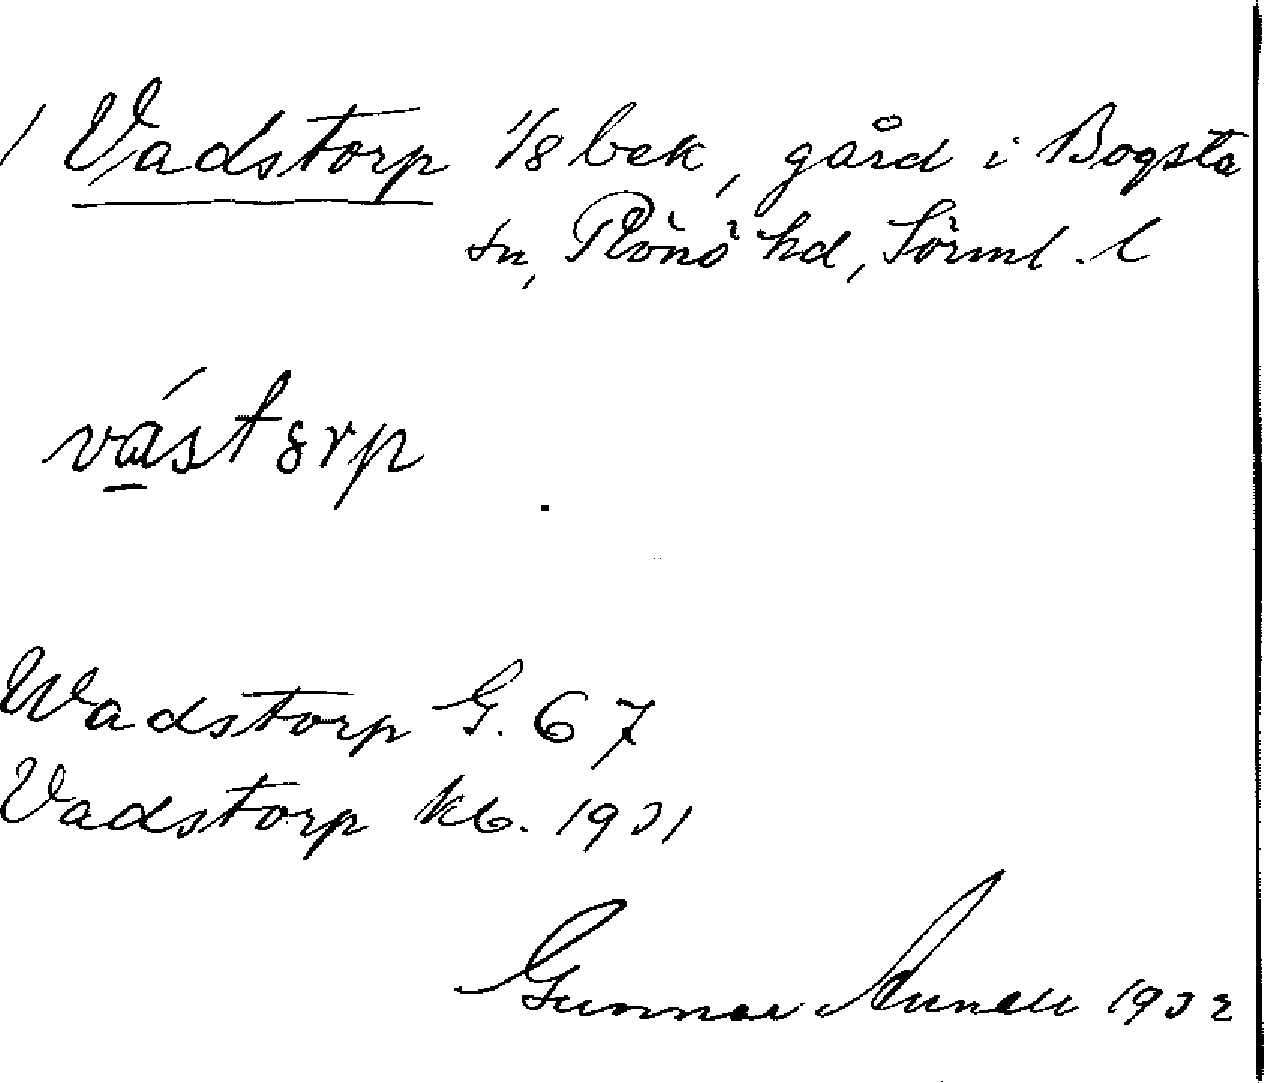 / Vadstorp 1/8 bek, gård i Bogsta
sn, Rönö hd, Sörml. l
västorp
Wadstorp G. 67
Vadstorp kb. 1931
Gunnar 1932